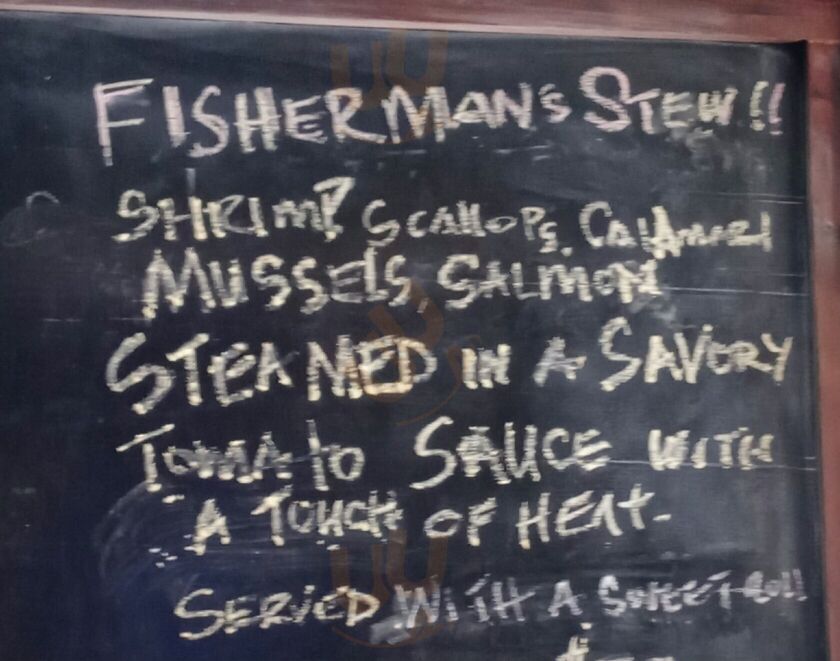 FISHERMAN'S STEW!!
SHRIMP SCALLOPS, CALAMARI
MUSSELS, SALMON
STEAMED IN A SAVORY
TOMATO SAUCE WITH
A TOUCH OF HEAT.
SERVED WITH A SWEET ROLL